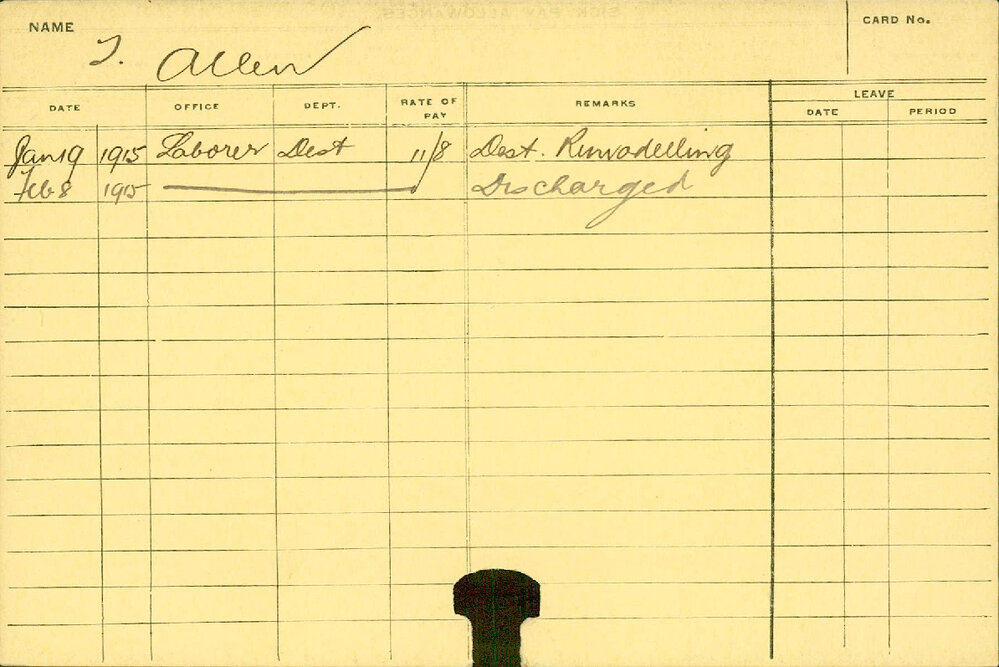 NAME T. Allen CARD No.
DATE OFFICE DEPT. RATE OF PAY REMARKS LEAVE
DATE PERIOD
Jan 19 1915 Laborer Dest 11/8 Dest. Remodelling
Feb 8 1915 Discharged